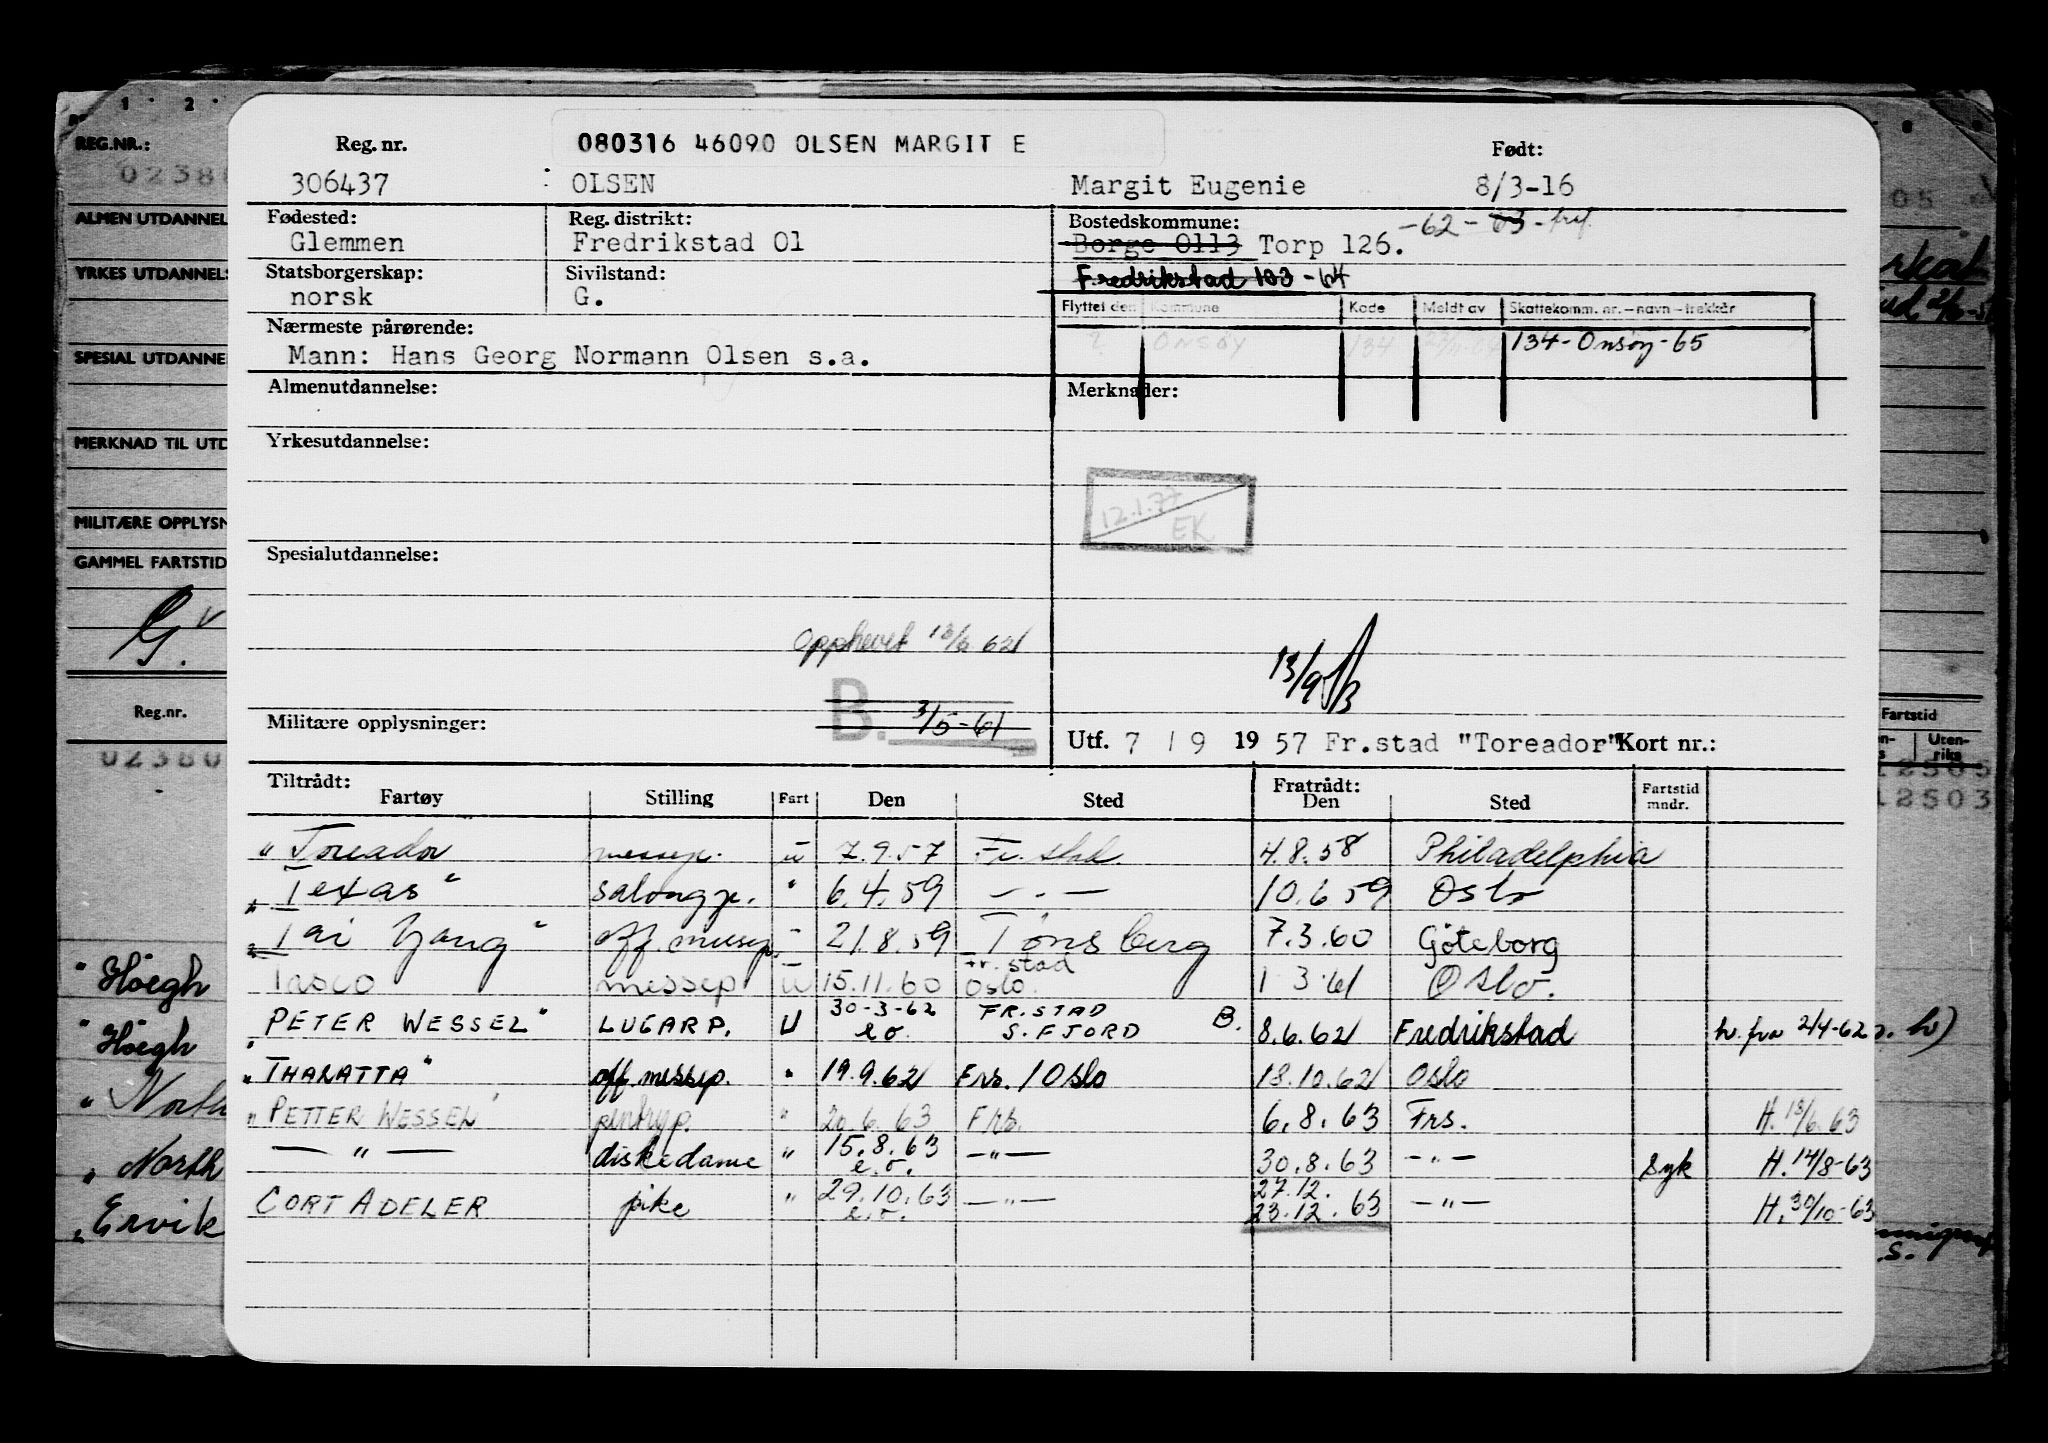 Reg. nr. 080316 46090 OLSEN MARGIT E Født:
306437 OLSEN Margit Eugenie 8/3-16
Fødested: Reg. distrikt: Bostedskommune: -62-63-frf.
Glemmen Fredrikstad Ol Borge 0113 Torp 126.
Statsborgerskap: Sivilstand: Fredrikstad 103-64
norsk G.
Flyttet den Kommune Kode Meldt av Skattekomm. nr. – navn – trekkår
Nærmeste pårørende: ONSØY 134 134-Onsøy-65
Mann: Hans Georg Normann Olsen s.a.
Almenutdannelse: Merknader:
Yrkesutdannelse:
12.1.77
EK
Spesialutdannelse:
Opphevet 13/6 62
13/9
B. 3/5-61
Militære opplysninger: Utf. 7/9 1957 Fr.stad "Toreador" Kort nr.:
Tiltrådt: Fratrådt:
Fartøy Stilling Fart Den Sted Den Sted Fartstid mndr.
" Toreador messep. u 7.9.57 Fr.stad 4.8.58 Philadelphia
" Texas " salongp. " 6.4.59 — " — 10.6.59 Oslo
" Tai Yang " off. messep. " 21.8.59 Tønsberg 7.3.60 Göteborg
Tasco messep u 15.11.60 Fr.stad Oslo. 1 3 61 Oslo.
" PETER WESSEL " LUGARP. U 30-3-62 e.o. FR.STAD S.FJORD B. 8.6.62 Fredrikstad h. fra 2/4-62
" THARATTA " off. messep. " 19.9.62 Frs. / Oslo 18.10.62 Oslo
" PETTER WESSEL " pentryp. " 20.6.63 Frs. 6.8.63 Frs. H. 13/6.63
— " — diskedame " 15.8.63 e.o. — " — 30.8.63 — " — Syk H. 14/8-63
CORT ADELER pike " 29.10.63 e.o. — " — 27.12. 23.12.63 — " — H. 30/10-63
1 2
REG.NR.:
ALMEN UTDANNEL
YRKES UTDANNELS
SPESIAL UTDANNE
MERKNAD TIL UTD
MILITÆRE OPPLYSN
GAMMEL FARTSTID
G.
Reg.nr.
02380
" Höegh
" Höegh
" North
" North
" Ervik
Fartstid
Uten-
riks
12505
12503